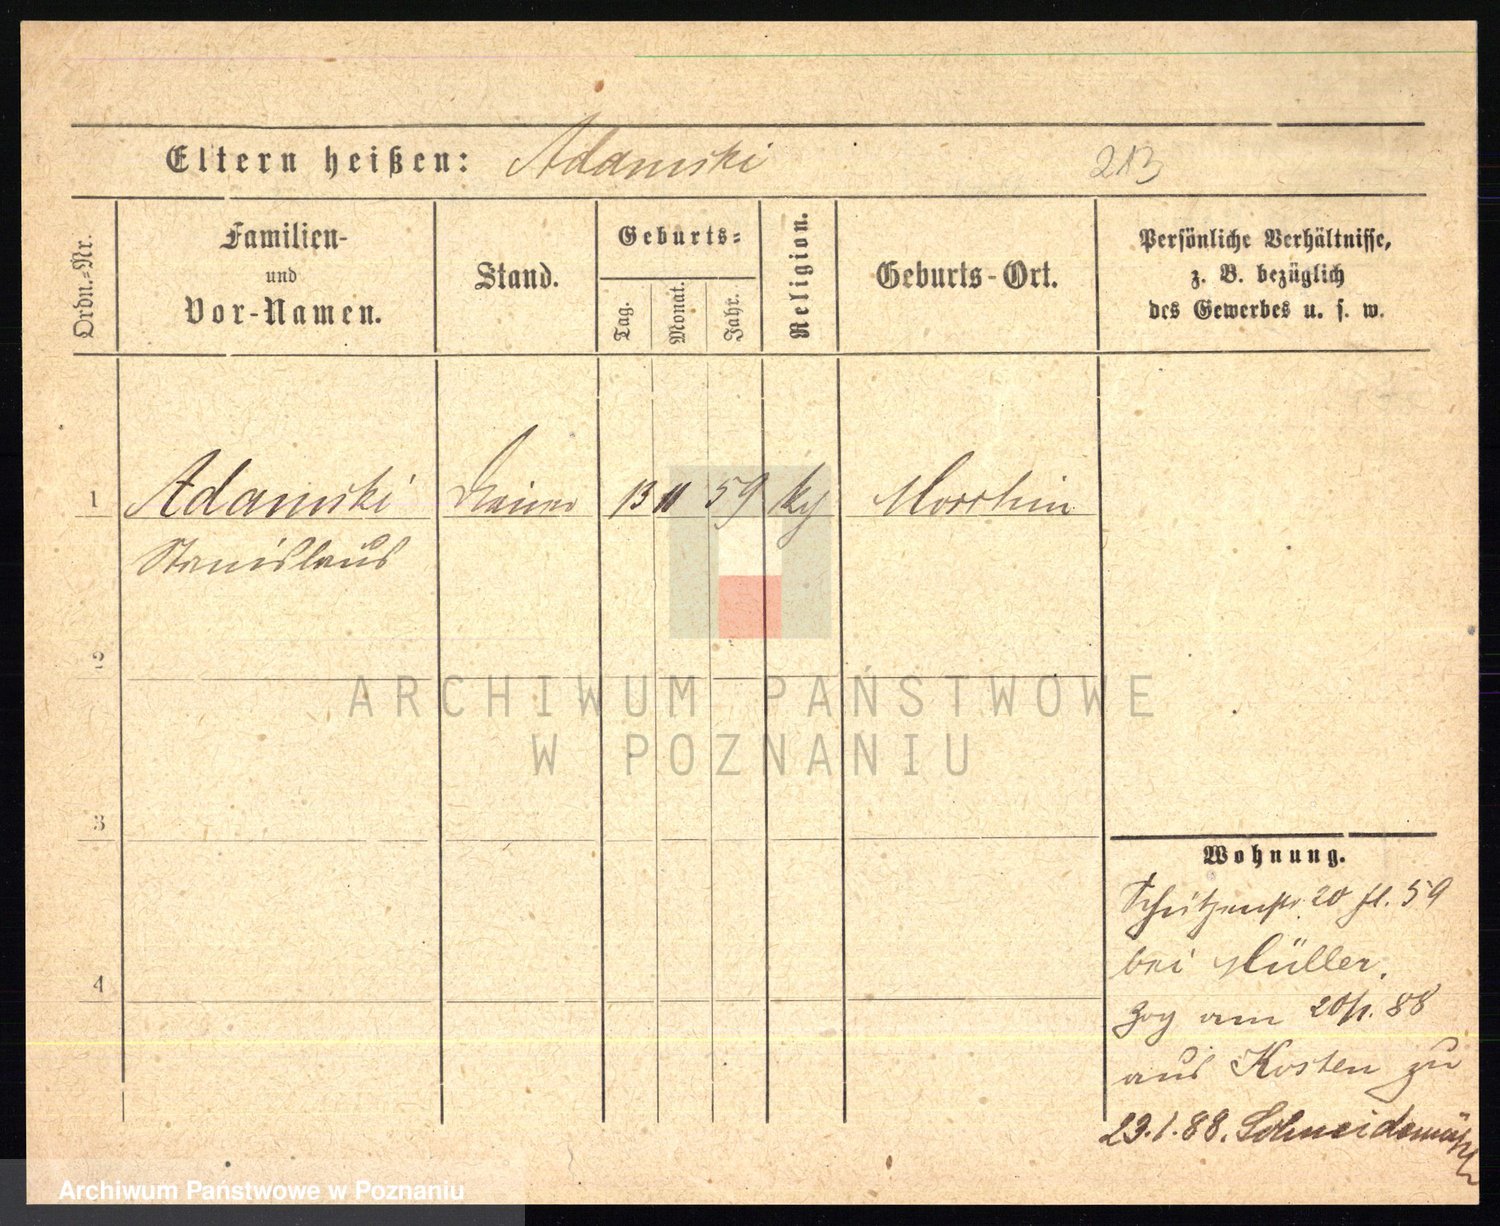 Eltern heißen: Adamski 213
Ordn.-Nr.
Familien-
und
Vor-Namen.
Stand.
Geburts-
Tag.
Monat.
Jahr.
Religion.
Geburts-Ort.
Persönliche Verhältnisse,
z. B. bezüglich
des Gewerbes u. s. w.
1 Adamski 13 11 59 kg Morrhin
Stanislaus
2
ARCHIWUM PAŃSTWOWE
W POZNANIU
3
4
Wohnung.
Schützenstr. 20 fl. 59
bei Müller.
Zog am 20/1. 88
aus Kosten zu
23.1.88. Schneidemühl
Archiwum Państwowe w Poznaniu